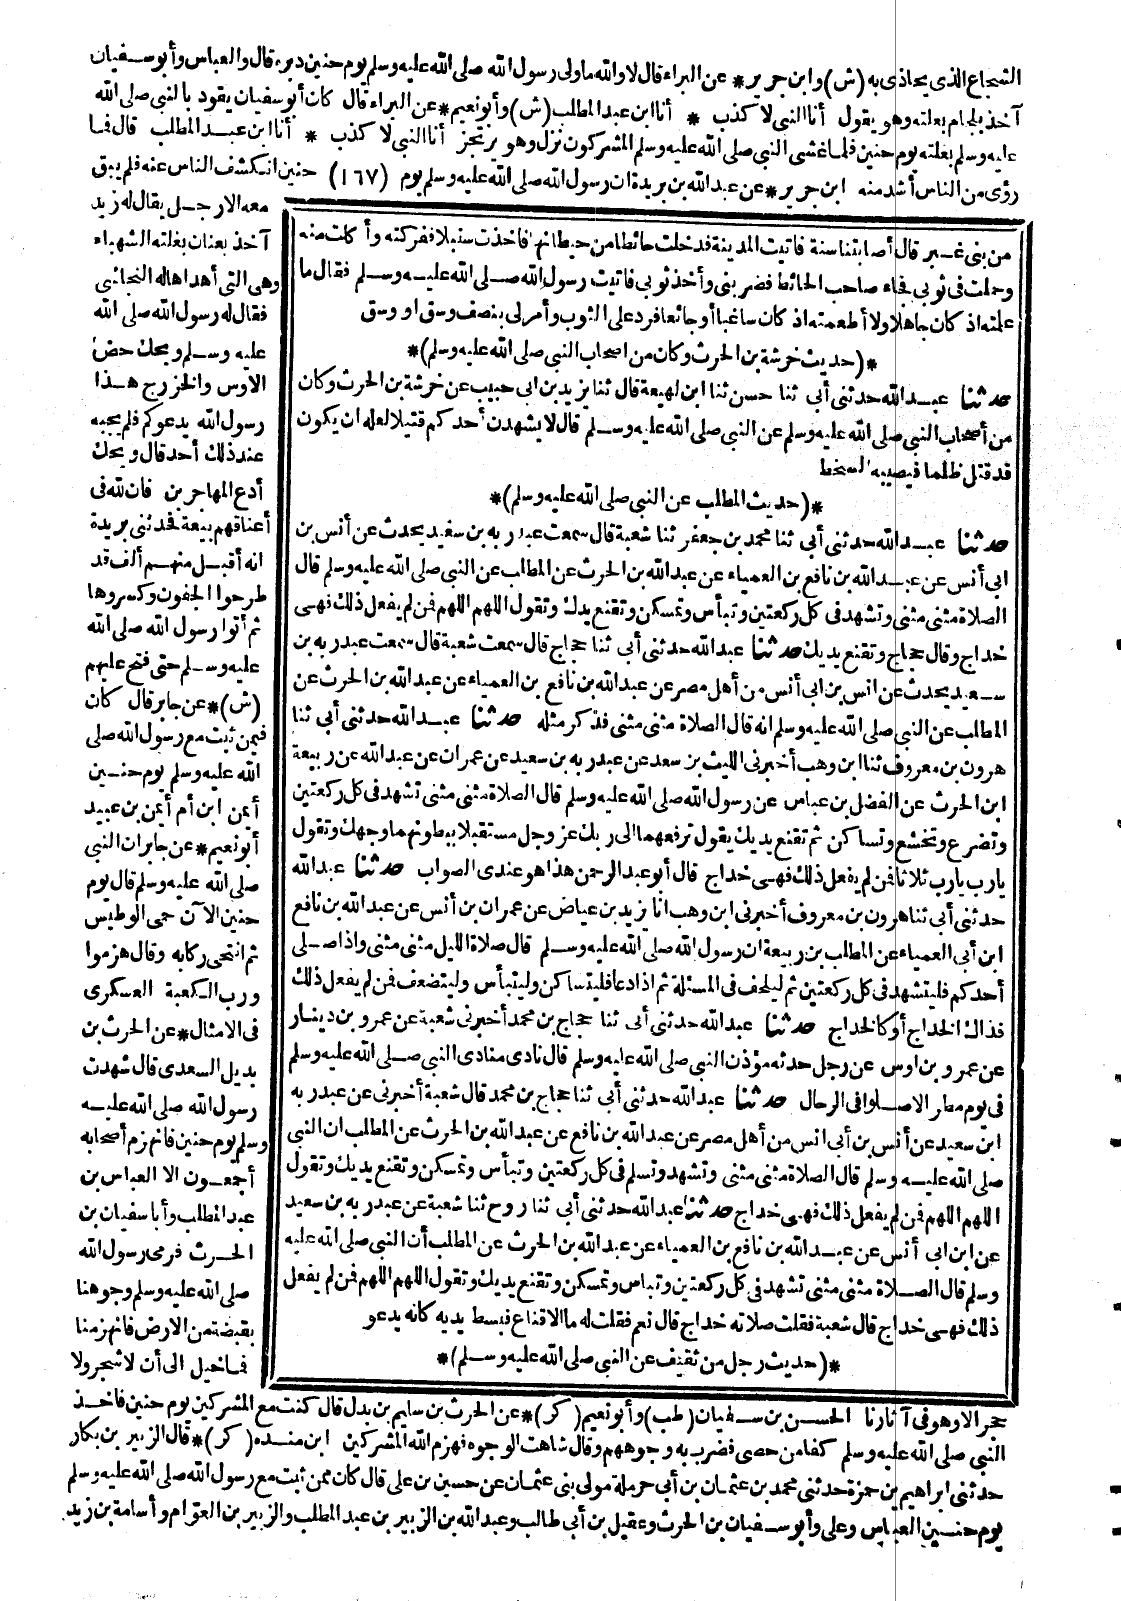 الشجاع الذي يحاذى به (ش) وابن جرير * عن البراء قال لا والله ما ولى رسول الله صلى الله عليه وسلم يوم حنين دبره قال والعباس وأبو سفيان
آخذ بلجام بغلته وهو يقول أنا النبي لا كذب * أنا ابن عبد المطلب (ش) وأبو نعيم * عن البراء قال كان أبو سفيان يقود بالنبي صلى الله
عليه وسلم بغلته يوم حنين فلما غشى النبي صلى الله عليه وسلم المشركون نزل وهو يرتجز أنا النبي لا كذب * أنا ابن عبد المطلب قال فما
رؤى من الناس أشد منه ابن جرير * عن عبد الله بن بريدة ان رسول الله صلى الله عليه وسلم يوم (١٦٧) حنين انكشف الناس عنه فلم يبق
معه الا رجل يقال له زيد
آخذ بعنان بغلته الشهباء
وهى التي أهداها له النجاشي
فقال له رسول الله صلى الله
عليه وسلم ويحك حض
الاوس والخزرج هذا
رسول الله يدعوكم فلم يجبه
عند ذلك أحد قال ويحك
أدع المهاجرين فان لله في
أعناقهم بيعة فحدثني بريدة
انه أقبل منهم ألف قد
طرحوا الجفون وكسروها
ثم أتوا رسول الله صلى الله
عليه وسلم حتى فتح عليهم
(ش) * عن جابر قال كان
فيمن ثبت مع رسول الله صلى
الله عليه وسلم يوم حنين
أيمن ابن أم أيمن بن عبيد
أبو نعيم * عن جابر ان النبي
صلى الله عليه وسلم قال يوم
حنين الآن حمى الوطيس
ثم انتحى ركابه وقال هزموا
ورب الكعبة العسكرى
فى الامثال * عن الحرث بن
بديل السعدى قال شهدت
رسول الله صلى الله عليه
وسلم يوم حنين فانهزم أصحابه
أجمعون الا العباس بن
عبد المطلب وأبا سفيان بن
الحرث فرمى رسول الله
صلى الله عليه وسلم وجوهنا
بقبضة من الارض فانهزمنا
فما خيل الى أن لا شجر ولا
من بني غبر قال أصابتنا سنة فاتيت المدينة فدخلت حائطا من حيطانها فاخذت سنبلا ففركته وأكلت منه
وحملت في ثوبي فجاء صاحب الحائط فضربني وأخذ ثوبي فاتيت رسول الله صلى الله عليه وسلم فقال ما
علمته اذ كان جاهلا ولا أطعمته اذ كان ساغبا أو جائعا فرد على الثوب وأمر لى بنصف وسق او وسق
*(حديث خرشة بن الحرث وكان من اصحاب النبي صلى الله عليه وسلم)*
حدثنا عبد الله حدثني أبي ثنا حسن ثنا ابن لهيعة قال ثنا يزيد بن ابي حبيب عن خرشة بن الحرث وكان
من أصحاب النبي صلى الله عليه وسلم عن النبي صلى الله عليه وسلم قال لا يشهدن أحدكم قتيلا لعله ان يكون
قد قتل ظلما فيصيبه السخط
*(حديث المطلب عن النبي صلى الله عليه وسلم)*
حدثنا عبد الله حدثني أبي ثنا محمد بن جعفر ثنا شعبة قال سمعت عبد ربه بن سعيد يحدث عن أنس بن
ابي أنس عن عبد الله بن نافع بن العمياء عن عبد الله بن الحرث عن المطلب عن النبي صلى الله عليه وسلم قال
الصلاة مثنى مثنى وتشهد في كل ركعتين وتبأس وتمسكن وتقنع يدك وتقول اللهم اللهم فمن لم يفعل ذلك فهى
خداج وقال حجاج وتقنع يديك حدثنا عبد الله حدثني أبي ثنا حجاج قال سمعت شعبة قال سمعت عبد ربه بن
سعيد يحدث عن انس بن ابي أنس من أهل مصر عن عبد الله بن نافع بن العمياء عن عبد الله بن الحرث عن
المطلب عن النبي صلى الله عليه وسلم انه قال الصلاة مثنى مثنى فذكر مثله حدثنا عبد الله حدثني أبي ثنا
هرون بن معروف ثنا ابن وهب أخبرني الليث بن سعد عن عبد ربه بن سعيد عن عمران عن عبد الله عن ربيعة
ابن الحرث عن الفضل بن عباس عن رسول الله صلى الله عليه وسلم قال الصلاة مثنى مثنى تشهد في كل ركعتين
وتضرع وتخشع وتساكن ثم تقنع يديك يقول ترفعهما الى ربك عز وجل مستقبلا ببطونهما وجهك وتقول
يارب يارب ثلاثا فمن لم يفعل ذلك فهى خداج قال أبو عبد الرحمن هذا هو عندى الصواب حدثنا عبد الله
حدثني أبي ثنا هرون بن معروف أخبرني ابن وهب انا يزيد بن عياض عن عمران بن أنس عن عبد الله بن نافع
ابن أبي العمياء عن المطلب بن ربيعة ان رسول الله صلى الله عليه وسلم قال صلاة الليل مثنى مثنى واذا صلى
أحدكم فليتشهد في كل ركعتين ثم ليلحف في المسئلة ثم اذا دعا فليتساكن وليتبأس وليتضعف فمن لم يفعل ذلك
فذاك الخداج أو كالخداج حدثنا عبد الله حدثني أبي ثنا حجاج بن محمد أخبرني شعبة عن عمرو بن دينار
عن عمرو بن اوس عن رجل حدثه مؤذن النبي صلى الله عليه وسلم قال نادى منادى النبي صلى الله عليه وسلم
في يوم مطار الا صلوا في الرحال حدثنا عبد الله حدثني أبي ثنا حجاج بن محمد قال شعبة أخبرني عن عبد ربه
ابن سعيد عن أنس بن أبي انس من أهل مصر عن عبد الله بن نافع عن عبد الله بن الحرث عن المطلب ان النبي
صلى الله عليه وسلم قال الصلاة مثنى مثنى وتشهد وتسلم في كل ركعتين وتبأس وتمسكن وتقنع يديك وتقول
اللهم اللهم فمن لم يفعل ذلك فهى خداج حدثنا عبد الله حدثني أبي ثنا روح ثنا شعبة عن عبد ربه بن سعيد
عن ابن ابي أنس عن عبد الله بن نافع بن العمياء عن عبد الله بن الحرث عن المطلب أن النبي صلى الله عليه
وسلم قال الصلاة مثنى مثنى تشهد في كل ركعتين وتباس وتمسكن وتقنع يديك وتقول اللهم اللهم فمن لم يفعل
ذلك فهى خداج قال شعبة فقلت صلاته خداج قال نعم فقلت له ما الاقناع فبسط يديه كانه يدعو
*(حديث رجل من ثقيف عن النبي صلى الله عليه وسلم)*
حجر الا وهو في آثارنا الحسن بن سفيان (طب) وأبو نعيم (كر) * عن الحرث بن سليم بن بدل قال كنت مع المشركين يوم حنين فاخذ
النبي صلى الله عليه وسلم كفا من حصى فضرب به وجوههم وقال شاهت الوجوه فهزم الله المشركين ابن منده (كر) * قال الزبير بن بكار
حدثني ابراهيم بن حمزة حدثني محمد بن عثمان بن أبي حرملة مولى بني عثمان عن حسين بن على قال كان ممن ثبت مع رسول الله صلى الله عليه وسلم
يوم حنين العباس وعلى وأبو سفيان بن الحرث وعقيل بن أبي طالب وعبد الله بن الزبير بن عبد المطلب والزبير بن العوام وأسامة بن زيد